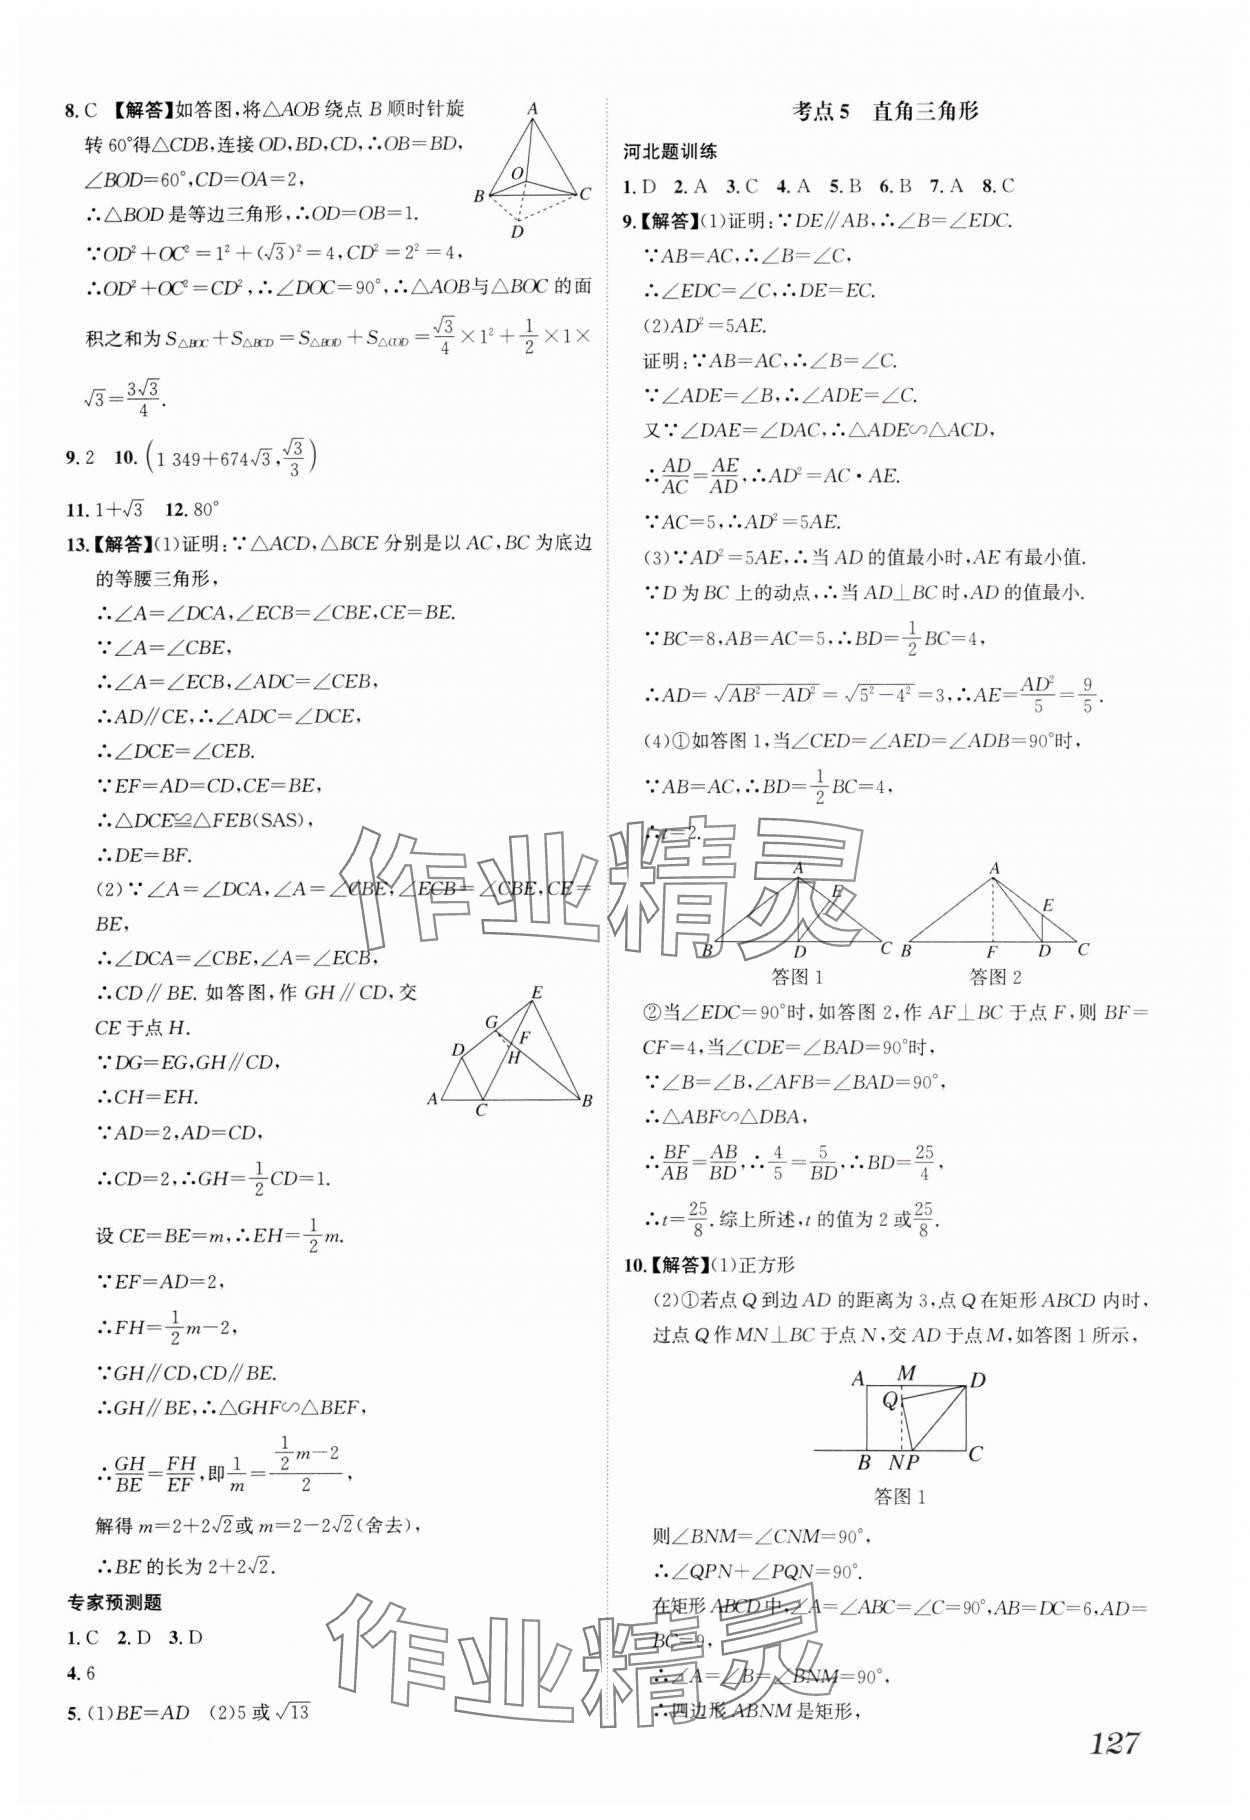 8. C 【解答】如答图,将△AOB绕点B顺时针旋
转60°得△CDB,连接OD,BD,CD,∴OB=BD,
∠BOD=60°,CD=OA=2,
∴△BOD是等边三角形,∴OD=OB=1.
∵OD²+OC²=1²+(√3)²=4,CD²=2²=4,
∴OD²+OC²=CD²,∴∠DOC=90°,∴△AOB与△BOC的面
积之和为S△BOC+S△BCD=S△BOD+S△COD=√3/4×1²+1/2×1×
√3=3√3/4.
A
O
B
C
D
9. 2 10. (1 349+674√3,√3/3)
11. 1+√3 12. 80°
13.【解答】(1)证明:∵△ACD,△BCE分别是以AC,BC为底边
的等腰三角形,
∴∠A=∠DCA,∠ECB=∠CBE,CE=BE.
∵∠A=∠CBE,
∴∠A=∠ECB,∠ADC=∠CEB,
∴AD∥CE,∴∠ADC=∠DCE,
∴∠DCE=∠CEB.
∵EF=AD=CD,CE=BE,
∴△DCE≌△FEB(SAS),
∴DE=BF.
(2)∵∠A=∠DCA,∠A=∠CBE,∠ECB=∠CBE,CE=
BE,
∴∠DCA=∠CBE,∠A=∠ECB,
∴CD∥BE.如答图,作GH∥CD,交
CE于点H.
∵DG=EG,GH∥CD,
∴CH=EH.
∵AD=2,AD=CD,
∴CD=2,∴GH=1/2CD=1.
设CE=BE=m,∴EH=1/2m.
∵EF=AD=2,
∴FH=1/2m-2,
∵GH∥CD,CD∥BE.
∴GH∥BE,∴△GHF∽△BEF,
∴GH/BE=FH/EF,即1/m=(1/2m-2)/2,
解得m=2+2√2或m=2-2√2(舍去),
∴BE的长为2+2√2.
E
G
F
D
H
A
C
B
专家预测题
1. C 2. D 3. D
4. 6
5. (1)BE=AD (2)5或√13
考点5 直角三角形
河北题训练
1. D 2. A 3. C 4. A 5. B 6. B 7. A 8. C
9.【解答】(1)证明:∵DE∥AB,∴∠B=∠EDC.
∵AB=AC,∴∠B=∠C,
∴∠EDC=∠C,∴DE=EC.
(2)AD²=5AE.
证明:∵AB=AC,∴∠B=∠C.
∵∠ADE=∠B,∴∠ADE=∠C.
又∵∠DAE=∠DAC,∴△ADE∽△ACD,
∴AD/AC=AE/AD,∴AD²=AC·AE.
∵AC=5,∴AD²=5AE.
(3)∵AD²=5AE,∴当AD的值最小时,AE有最小值.
∵D为BC上的动点,∴当AD⊥BC时,AD的值最小.
∵BC=8,AB=AC=5,∴BD=1/2BC=4,
∴AD=√(AB²-AD²)=√(5²-4²)=3,∴AE=AD²/5=9/5.
(4)①如答图1,当∠CED=∠AED=∠ADB=90°时,
∵AB=AC,∴BD=1/2BC=4,
∴t=2.
A
E
B
D
C
答图1
A
E
B
F
D
C
答图2
②当∠EDC=90°时,如答图2,作AF⊥BC于点F,则BF=
CF=4,当∠CDE=∠BAD=90°时,
∵∠B=∠B,∠AFB=∠BAD=90°,
∴△ABF∽△DBA,
∴BF/AB=AB/BD,∴4/5=5/BD,∴BD=25/4,
∴t=25/8.综上所述,t的值为2或25/8.
10.【解答】(1)正方形
(2)①若点Q到边AD的距离为3,点Q在矩形ABCD内时,
过点Q作MN⊥BC于点N,交AD于点M,如答图1所示,
A
M
D
Q
B
N
P
C
答图1
则∠BNM=∠CNM=90°,
∴∠QPN+∠PQN=90°.
在矩形ABCD中,∠A=∠ABC=∠C=90°,AB=DC=6,AD=
BC=9,
∴∠A=∠B=∠BNM=90°,
∴四边形ABNM是矩形,
作业精灵
作业精灵
127